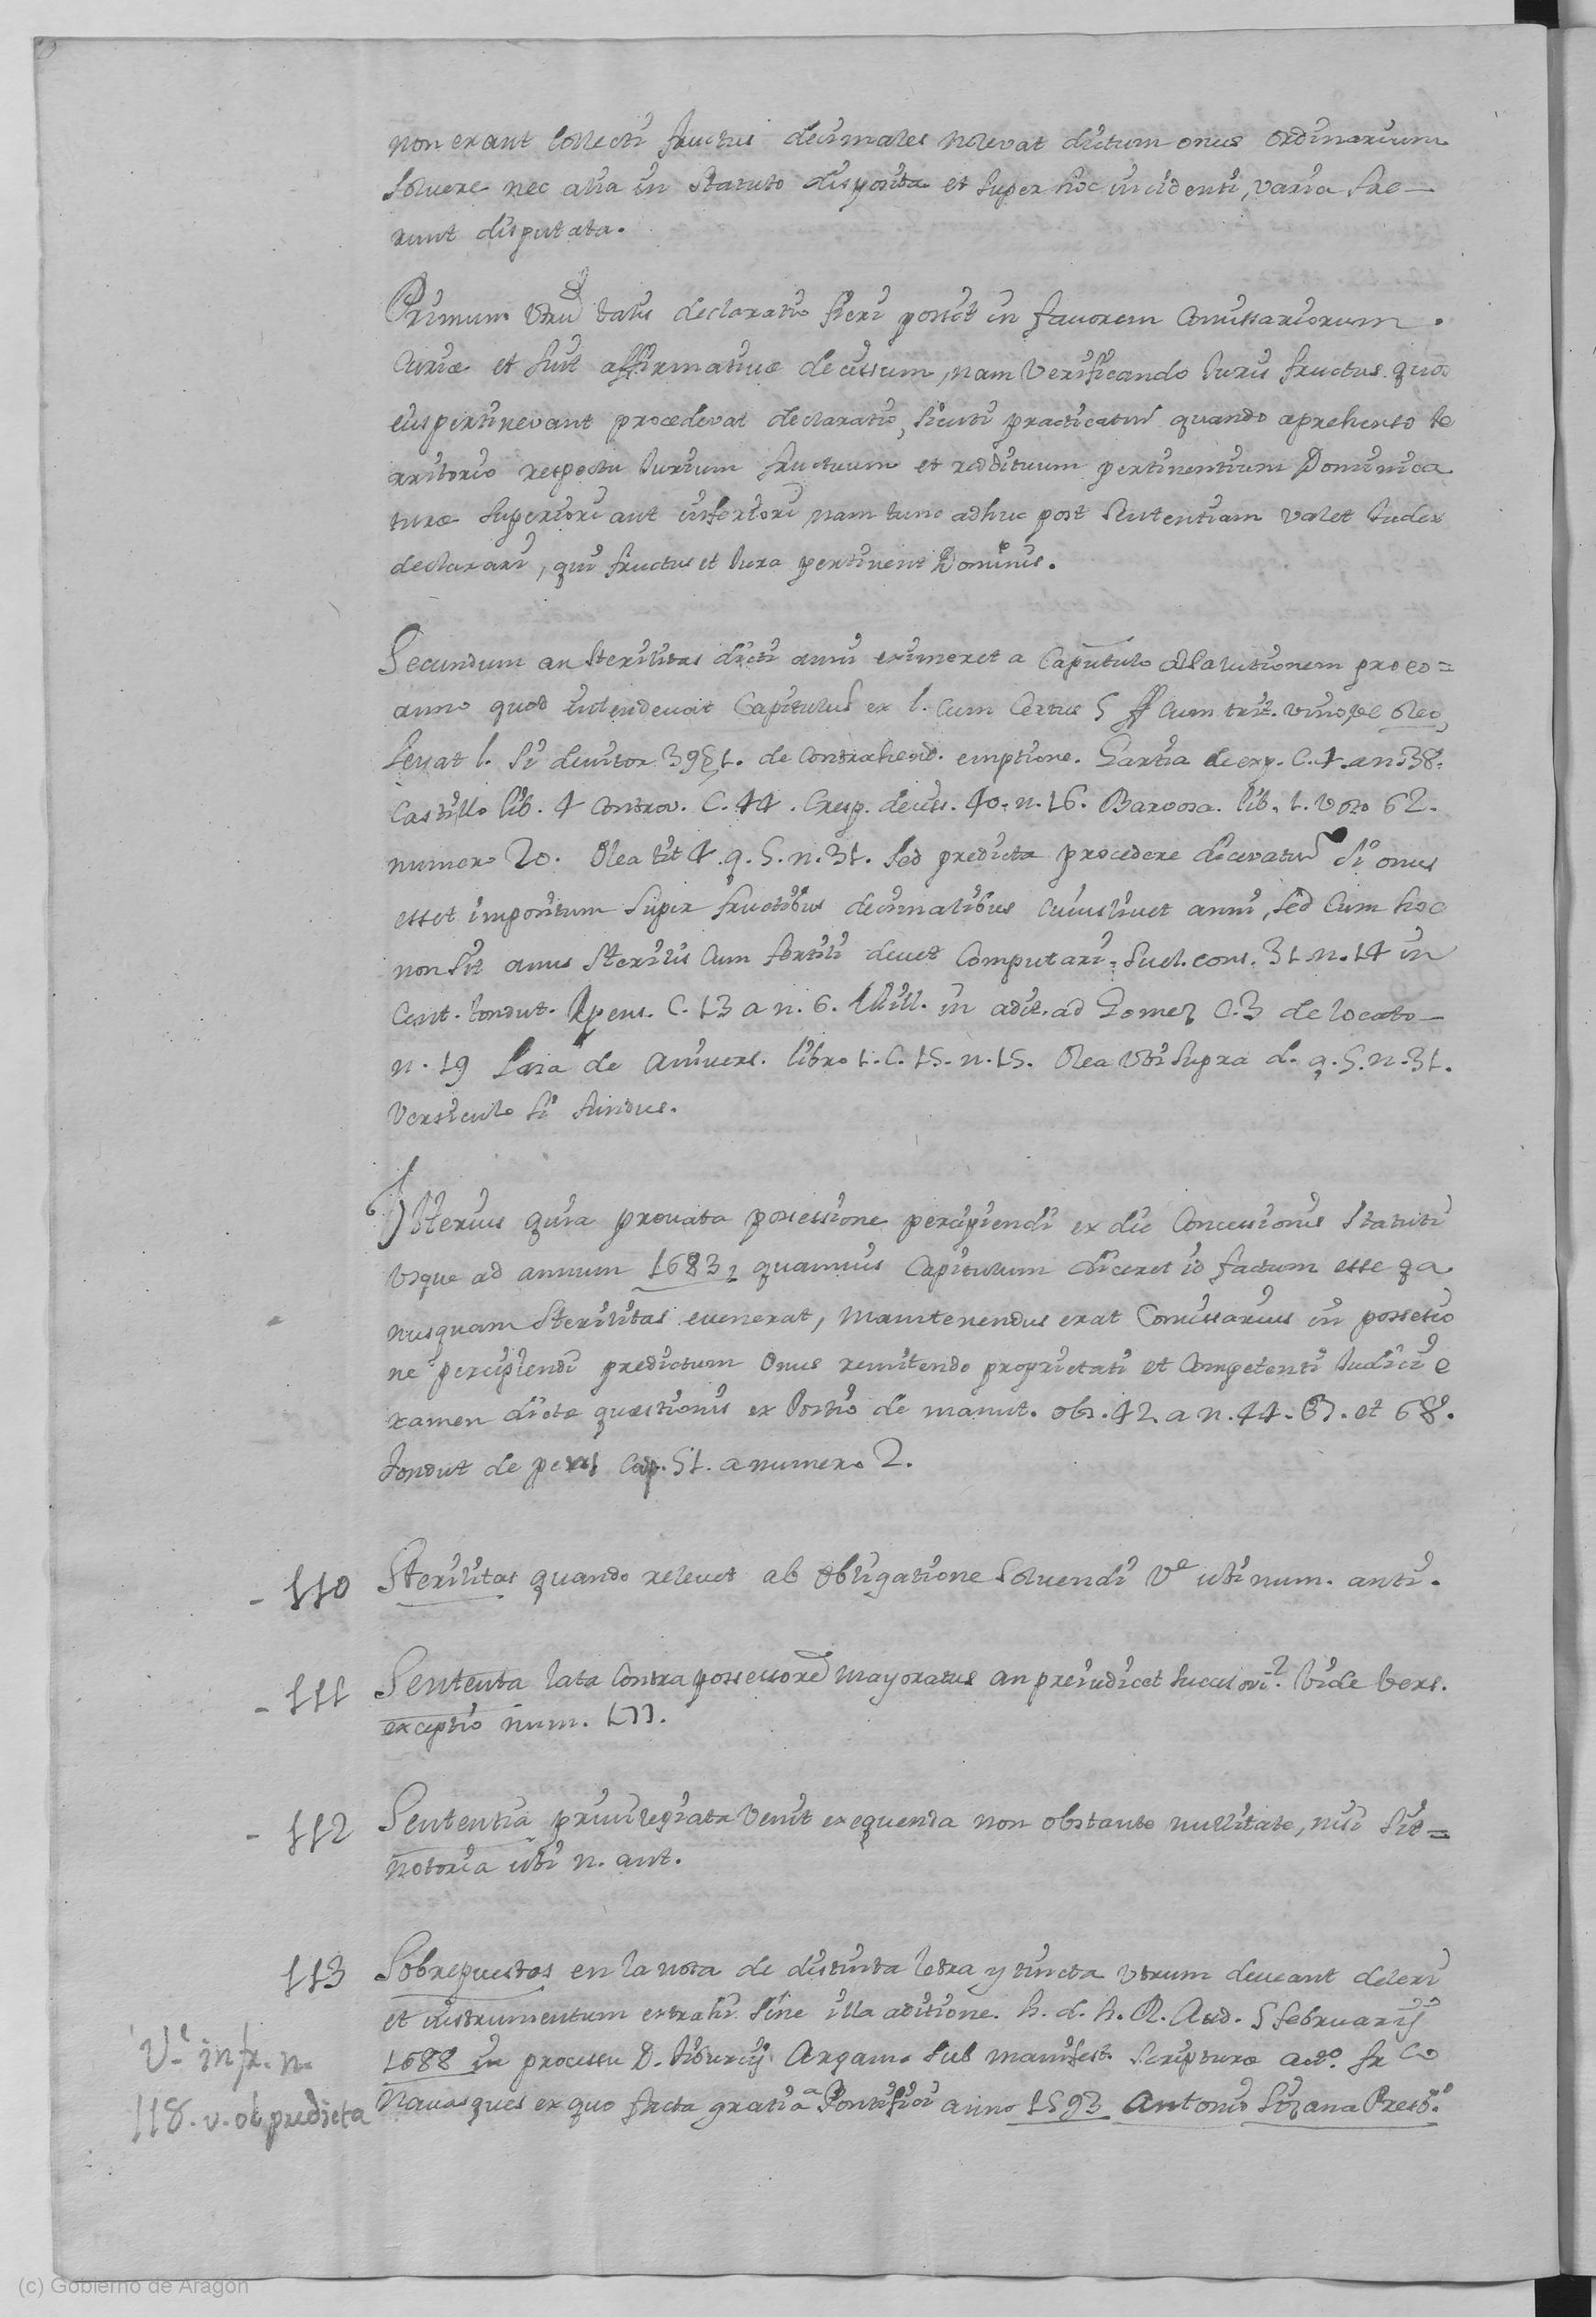 non erant collecti fructus decimales nolevat dictum onus ordinarium
soluere nec alia in statuto disposita et super hoc incidenti, varia fue-
runt disputata.
Primum Utrũ talis declaratio fieri possit in fauorem Comissariorum.
Curiæ et fuit affirmatiue decissum, nam verificando iuris fructus quos
eius pertinevant procedevat declaratio, sicuti practicatur quando aprehenso te
rritorio respectu iurium fructuum et reddituum pertinentium Dominica
turæ superiori aut inferiori, nam tunc adhuc post sententiam valet iudex
declarari, qui fructus et iura pertinent Dominis.
Secundum an sterilitas dicti anni eximeret a Capitulo solutionem pro eo=
anno quod intendevat Capitulus ex l. cum Certus 5 ff cum trit. vino vel oleo,
l. si devitor 39 de contrahend. emptione. Garzia de exp. C. 4. a n. 38.
Castillo lib. 4 Controv. C. 44. Cresp. deciss. 40. n. 16. Barvosa. lib. 1. voto 62.
numero 20. Olea tit 4. q. 5. n. 31. sed predicta procedere dicevatur si onus
esset impositum super fructibus decimalibus cuiuslivet anni, sed cum hoc
non sit anus sterilis cum fertili devet Computari. Suel. cons. 31 n. 14 in
Cent. Condut. pens. C. 13 a n. 6. in adit. ad Gomez C. 3 de locato-
n. 19 Lara de Anivers. libro 1. C. 15. n. 15. Olea Ubi supra d. q. 5. n. 31.
Versiculo si fundus.
Ulterius quia provata possessione percipiendi ex die Concessionis Statuti
Usque ad annum 1683, quamuis Capitulum diceret id factum esse qa
nusquam sterilitas evenerat, mantenendus erat Comissarius in possessio
ne percipiendi predictum onus remitendo proprietati et Competenti Iudici e
xamen dictæ quæstionis ex Postio de manut. obs. 42. a n. 44. 67. et 68.
Tondut de pens Cap. 51. a numero 2.
- 110 Sterilitas quando relevet ab obligatione soluendi Ve ubi num. anti.
- 111 Sententia lata Contra possessorẽ mayoratus an preiudicet succesori? Vide vers.
exceptio num. 177.
- 112 Sententia privilegiata Venit exequenda non obstante nullitate, nisi sit=
notoria ubi n. ant.
113 Sobrepuestos en la nota de distinta letra y tincta Utrum deveant deleri
et instrumentum extrahi sine illa aditione. h. d. h. R. Aud. 5 februarij
1688 in processu D. Tiburcij Argamo sub manifest. Scripturæ acto. fr Co
Navasques ex quo facta gratia a Pontifici anno 1593 Antonio Lizana Presb.o
Ve. infr. n.
118. v. ob predicta
(c) Gobierno de Aragón